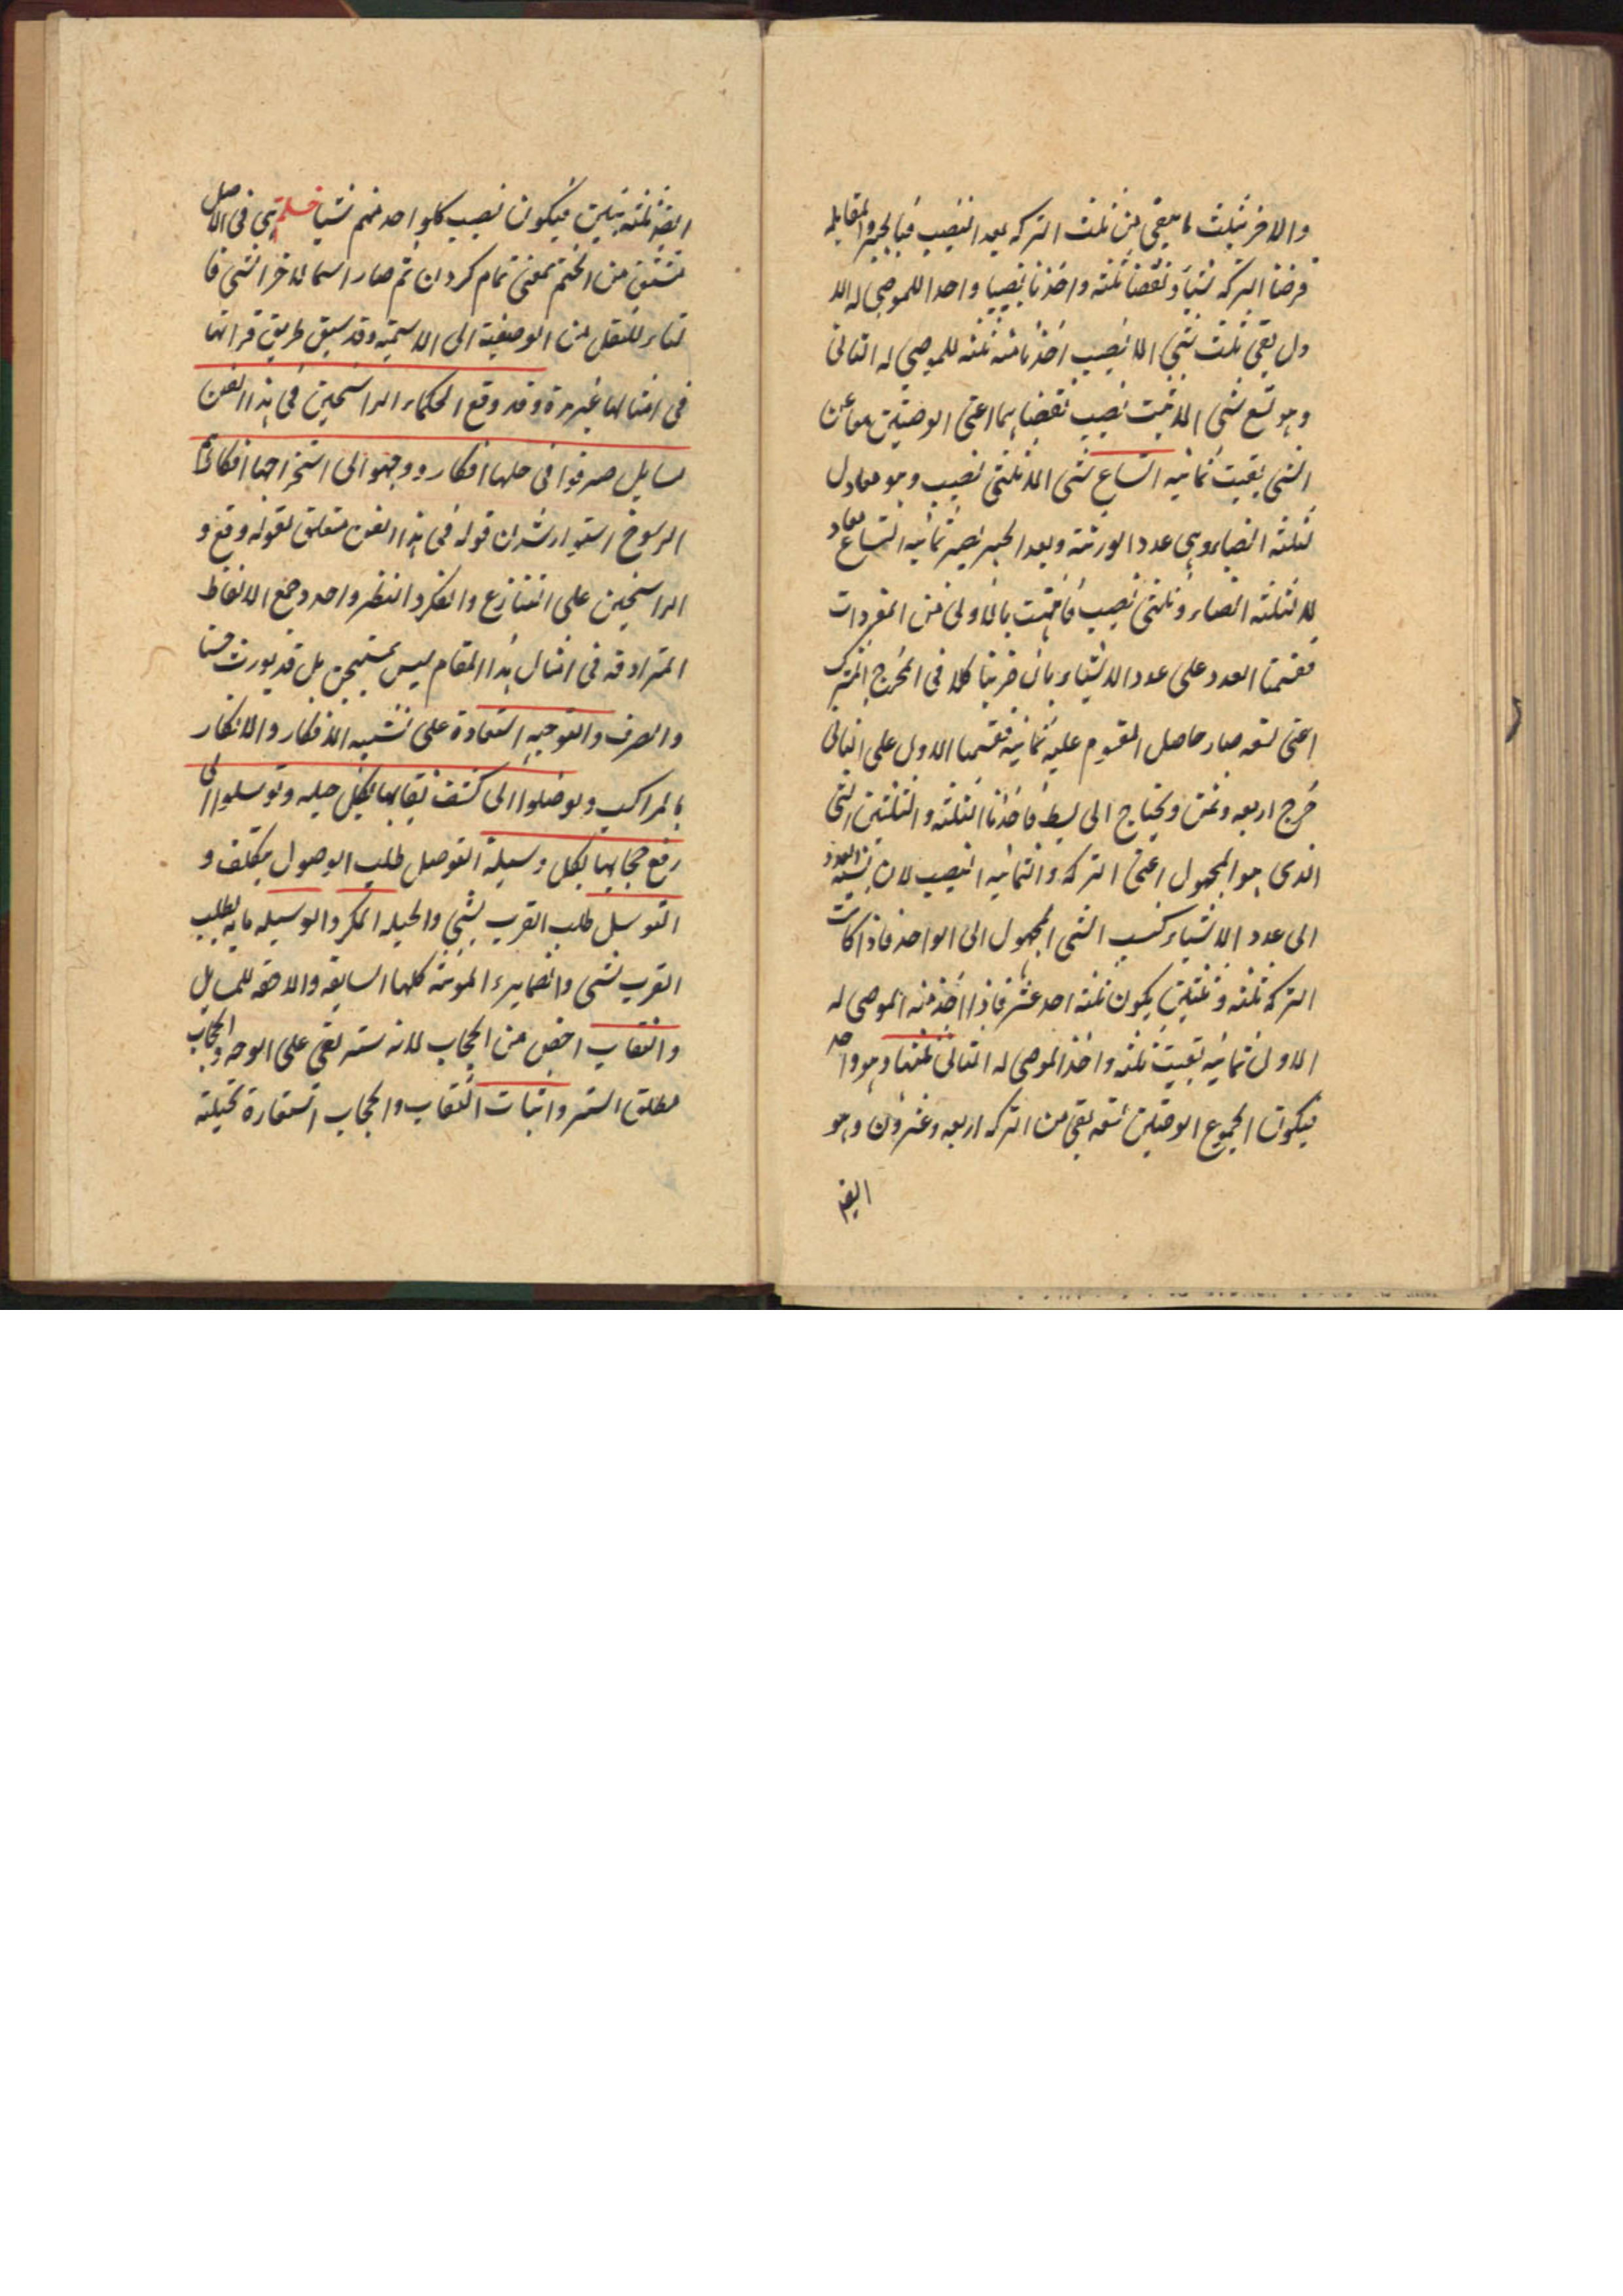 والاخر بثلث ما يبقى من ثلث التركه بعد النصيب فبالجبر والمقابله
فرضنا التركه شيئا ونقصنا ثلثه واخذنا نصيبا واحدا للموصى له الا
ول بقى ثلث شى الا نصيب اخذنا منه ثلثه للموصى له الثانى
وهو تسع شى الا ثلث نصيب نقصناهما اعنى الوصيتين معا من
الشى بقيت ثمانيه اتساع شى الا ثلثى نصيب وهو معادل
لثلثة انصباء وهى عدد الورثة وبعد الجبر يصير ثمانيه اتساع معاد
لا لثلثة انصباء وثلثى نصيب فانتهت بالاولى من المفردات
فقسمنا العدد على عدد الاشياء بان ضربنا كلا فى المخرج المشترك
اعنى تسعه صار حاصل المقسوم عليه ثمانية فقسمنا الاول على الثانى
خرج اربعه وثمن ويحتاج الى بسط فاخذنا الثلثة والثلثين الشى
الذى هو المجهول اعنى التركه والثمانيه النصيب لان نسبة العدد
الى عدد الاشياء كنسب الشى المجهول الى الواحد فاذا كانت
التركه ثلثه وثلثين يكون ثلثه احد عشر فاذا اخذ منه الموصى له
الاول ثمانيه بقيت ثلثه واخذ الموصى له الثانى ثلثها وهو واحد
فيكون المجموع الوصيتين تسعه بقى من التركه اربعه وعشرون وهو
ايضا
ايضا ثلثة بنين فيكون نصيب كلواحد منهم شيئا خاتمة هى فى الاصل
مشتق من الختم بمعنى تمام كردن ثم صار اسما لاخر الشى فا
لتاء للنقل من الوصفية الى الاسمية وقد سبق طريق قراتها
فى امثالها غير مرة وقد وقع الحكماء الراسخين فى هذا الفن
مسايل صرفوا فى حلها افكار ووجهوا الى استخراجها افكارهم
الرسوخ استوار شدن قوله فى هذا الفن متعلق بقوله وقع و
الراسخين على التنازع والفكر والنظر واحد وجمع الالفاظ
المترادفه فى امثال هذا المقام ليس بمستهجن بل قد يورث حسنا
والصرف والتوجيه استعارة على تشبيه الافكار والانكار
بالمراكب وتوصلوا الى كشف نقابها بكل حيله وتوسلوا الى
رفع حجابها بكل وسيلة التوصل طلب الوصول بتكلف و
التوسل طلب القرب بشى والحيله المكر والوسيله ما به يطلب
القرب بشى والضماير المونثة كلها السابقه والاحقه للمسايل
والنقاب اخص من الحجاب لانه ستر يقع على الوجه والحجاب
مطلق الستر واثبات النقاب والحجاب استعارة تخيلية